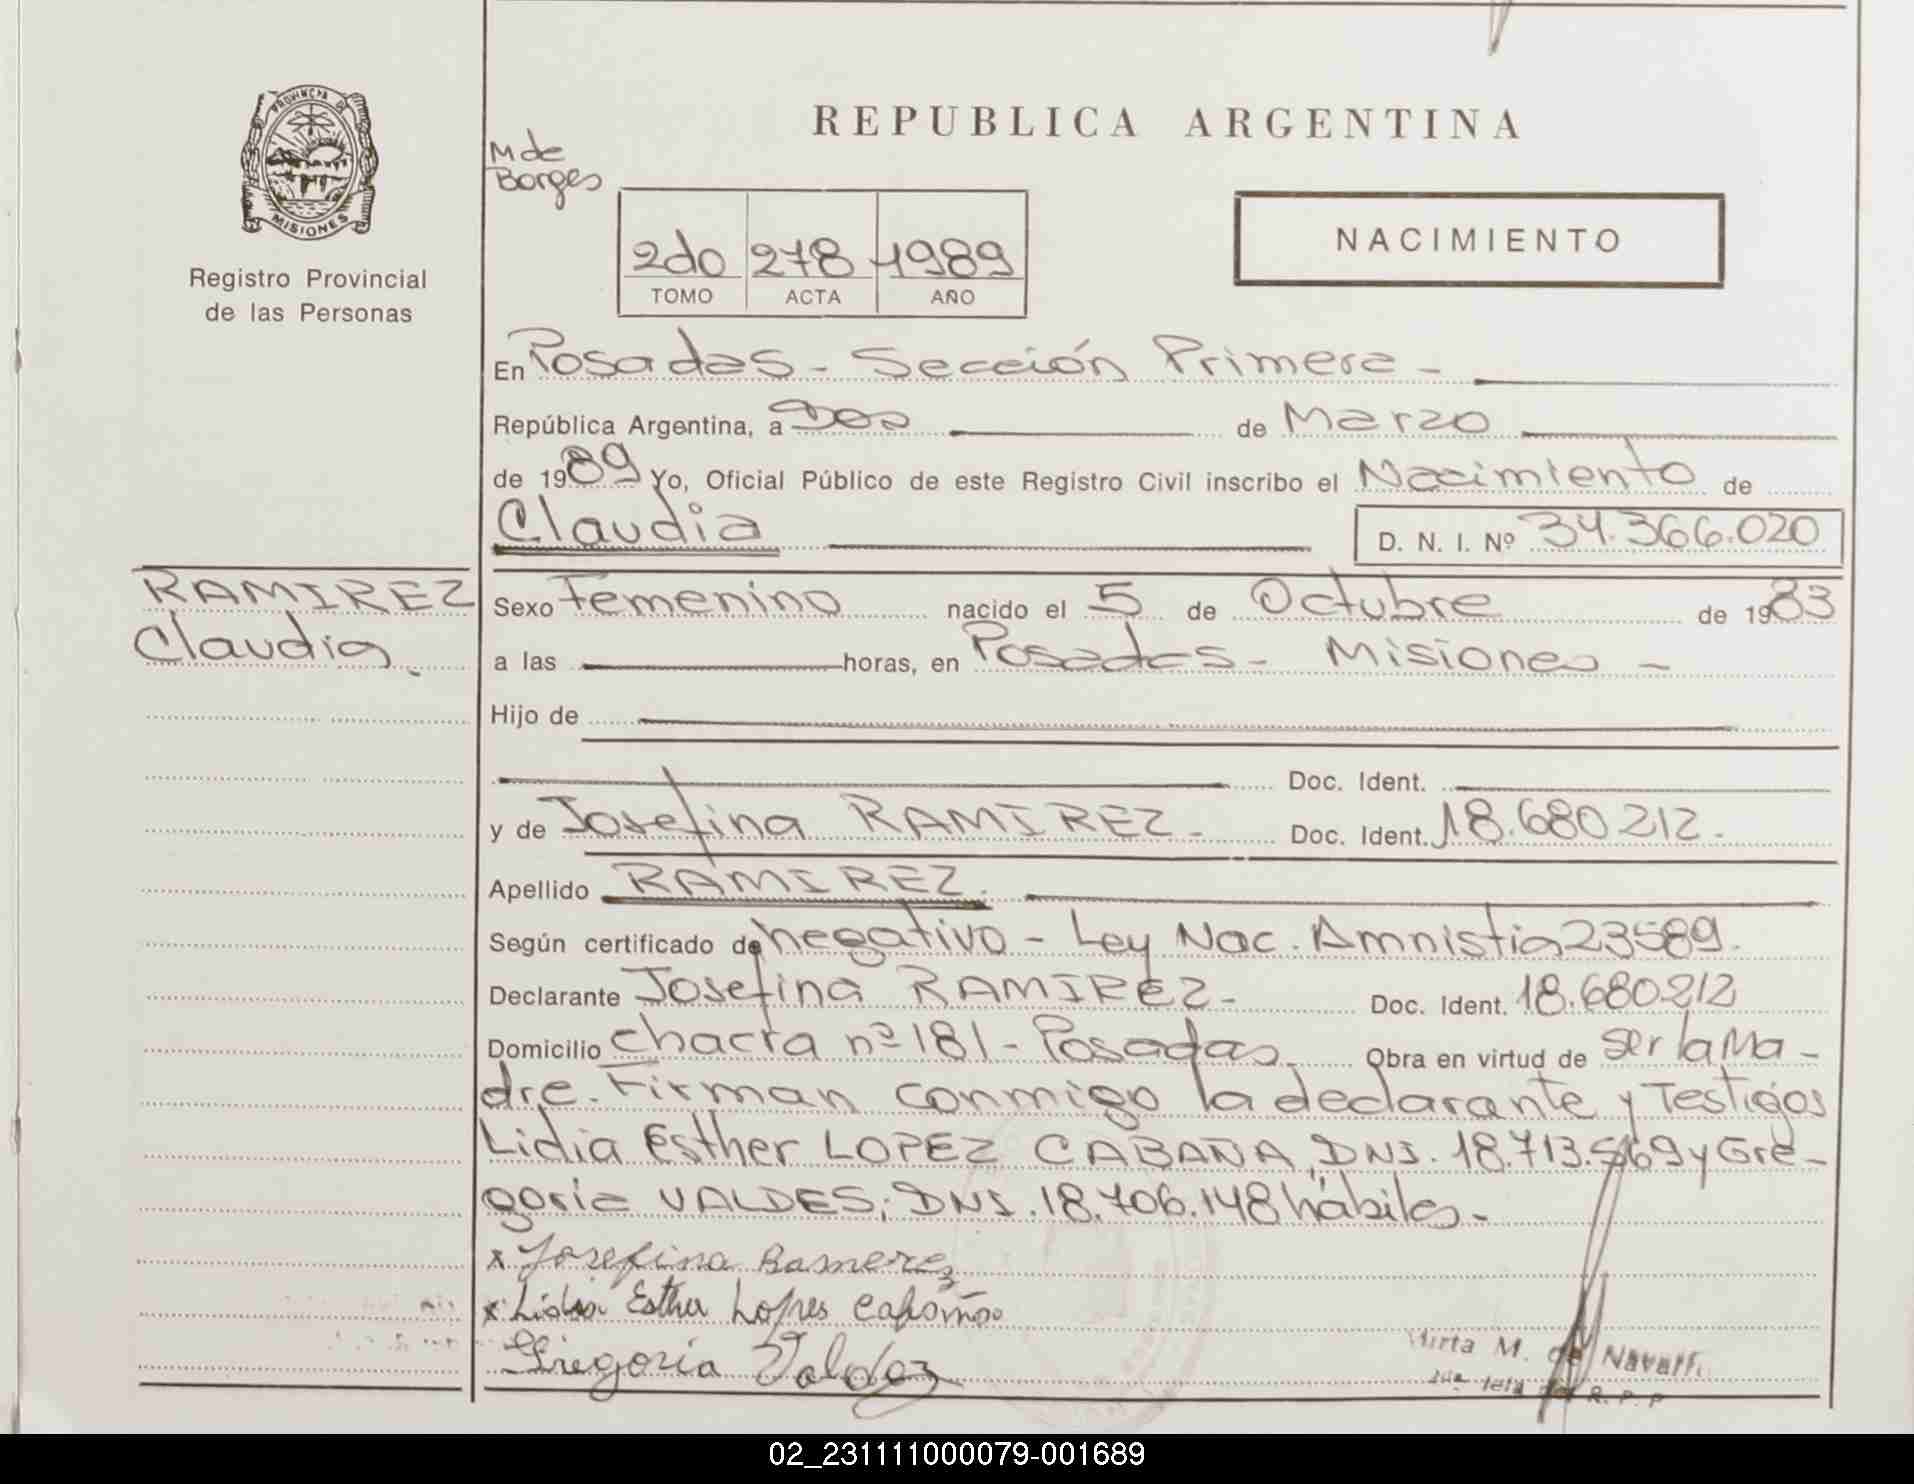 PROVINCIA DE
MISIONES
Registro Provincial
de las Personas
REPUBLICA ARGENTINA
M de
Borges
2do 278 1989
TOMO ACTA AÑO
NACIMIENTO
En Posadas - Sección Primera -
República Argentina, a Dos de Marzo
de 1989 Yo, Oficial Público de este Registro Civil inscribo el Nacimiento de
Claudia D. N. I. Nº 34.366.020
RAMIREZ
Claudia.
Sexo Femenino nacido el 5 de Octubre de 1983
a las horas, en Posadas - Misiones -
Hijo de
Doc. Ident.
y de Josefina RAMIREZ - Doc. Ident. 18.680212.
Apellido RAMIREZ.
Según certificado de negativo - Ley Nac. Amnistia 23589.
Declarante Josefina RAMIREZ - Doc. Ident. 18.680212
Domicilio chacra nº 181 - Posadas. Obra en virtud de ser la Ma-
dre. Firman conmigo la declarante y Testigos
Lidia Esther LOPEZ CABAÑA, DNI. 18.713.569 y Gre-
goria VALDES; DNI. 18.706.148 hábiles.-
x Josefina Ramerez
x Lidia Esther Lopes
Gregoria Valdez
Mirta M. de
R. P. P
02_231111000079-001689